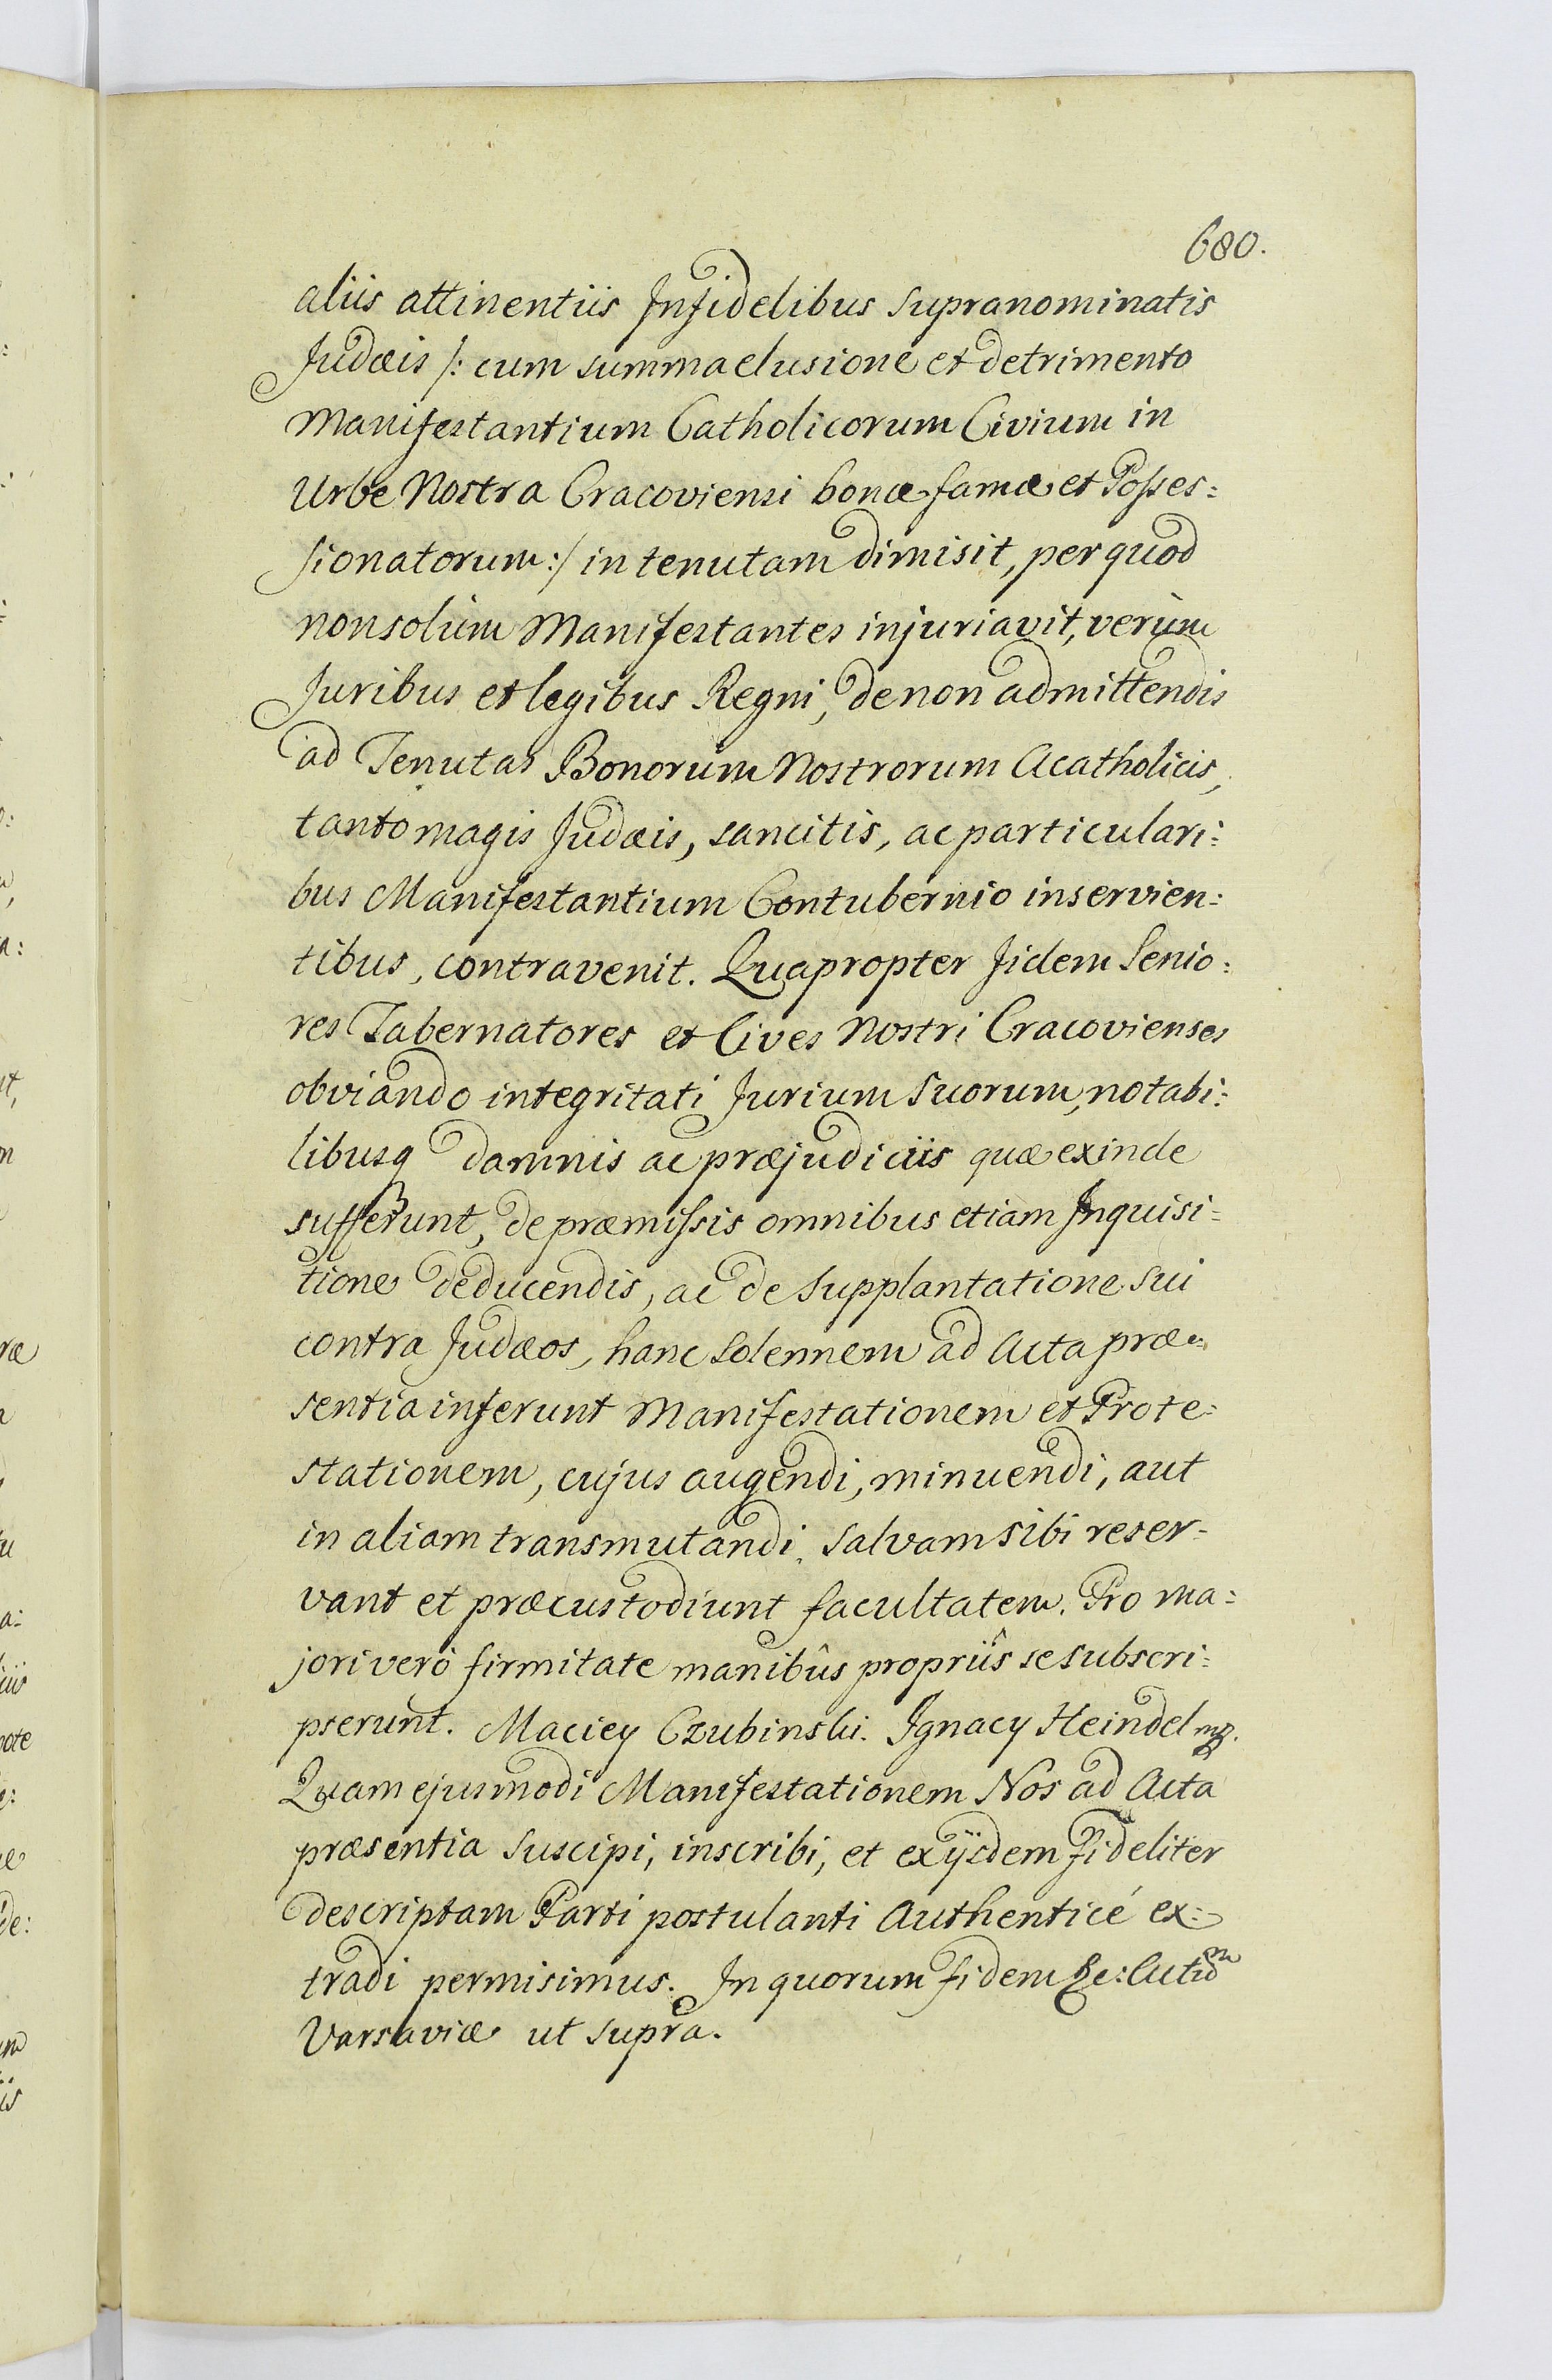 680.
aliis attinentiis Infidelibus supranominatis
Judæis /: cum summa elusione et detrimento
Manifestantium Catholicorum Civium in
Urbe Nostra Cracoviensi bonæ famæ et Posses:
sionatorum :/ in tenutam dimisit, per quod
non solùm Manifestantes injuriavit, verùm
Juribus et legibus Regni, de non admittendis
ad Tenutas Bonorum Nostrorum Acatholicis,
tanto magis Judæis, sancitis, ac particulari:
bus Manifestantium Contubernio inservien:
tibus, contravenit. Quapropter Iidem Senio:
res Tabernatores et Cives Nostri Cracovienses
obviando integritati Jurium suorum, notabi:
libusq damnis ac præjudiciis quæ exinde
sufferunt, de præmissis omnibus etiam Inquisi:
tione deducendis, ac de supplantatione sui
contra Judæos, hanc solennem ad Acta præ:
sentia inferunt Manifestationem et Prote:
stationem, cujus augendi, minuendi, aut
in aliam transmutandi, salvam sibi reser-
vant et præcustodiunt facultatem. Pro ma:
jori verò firmitate manibûs propriîs se subscri:
pserunt. Maciey Czubinski. Ignacy Heindel mp.
Quam ejusmodi Manifestationem Nos ad Acta
præsentia suscipi, inscribi, et exÿsdem fideliter
descriptam Parti postulanti Authenticé ex:
tradi permisimus. In quorum fidem &c: Act̃um
Varsaviæ ut supra.
:
:
o:
a:
ut,
m
ræ
a:
iis
note
e:
de:
um
is